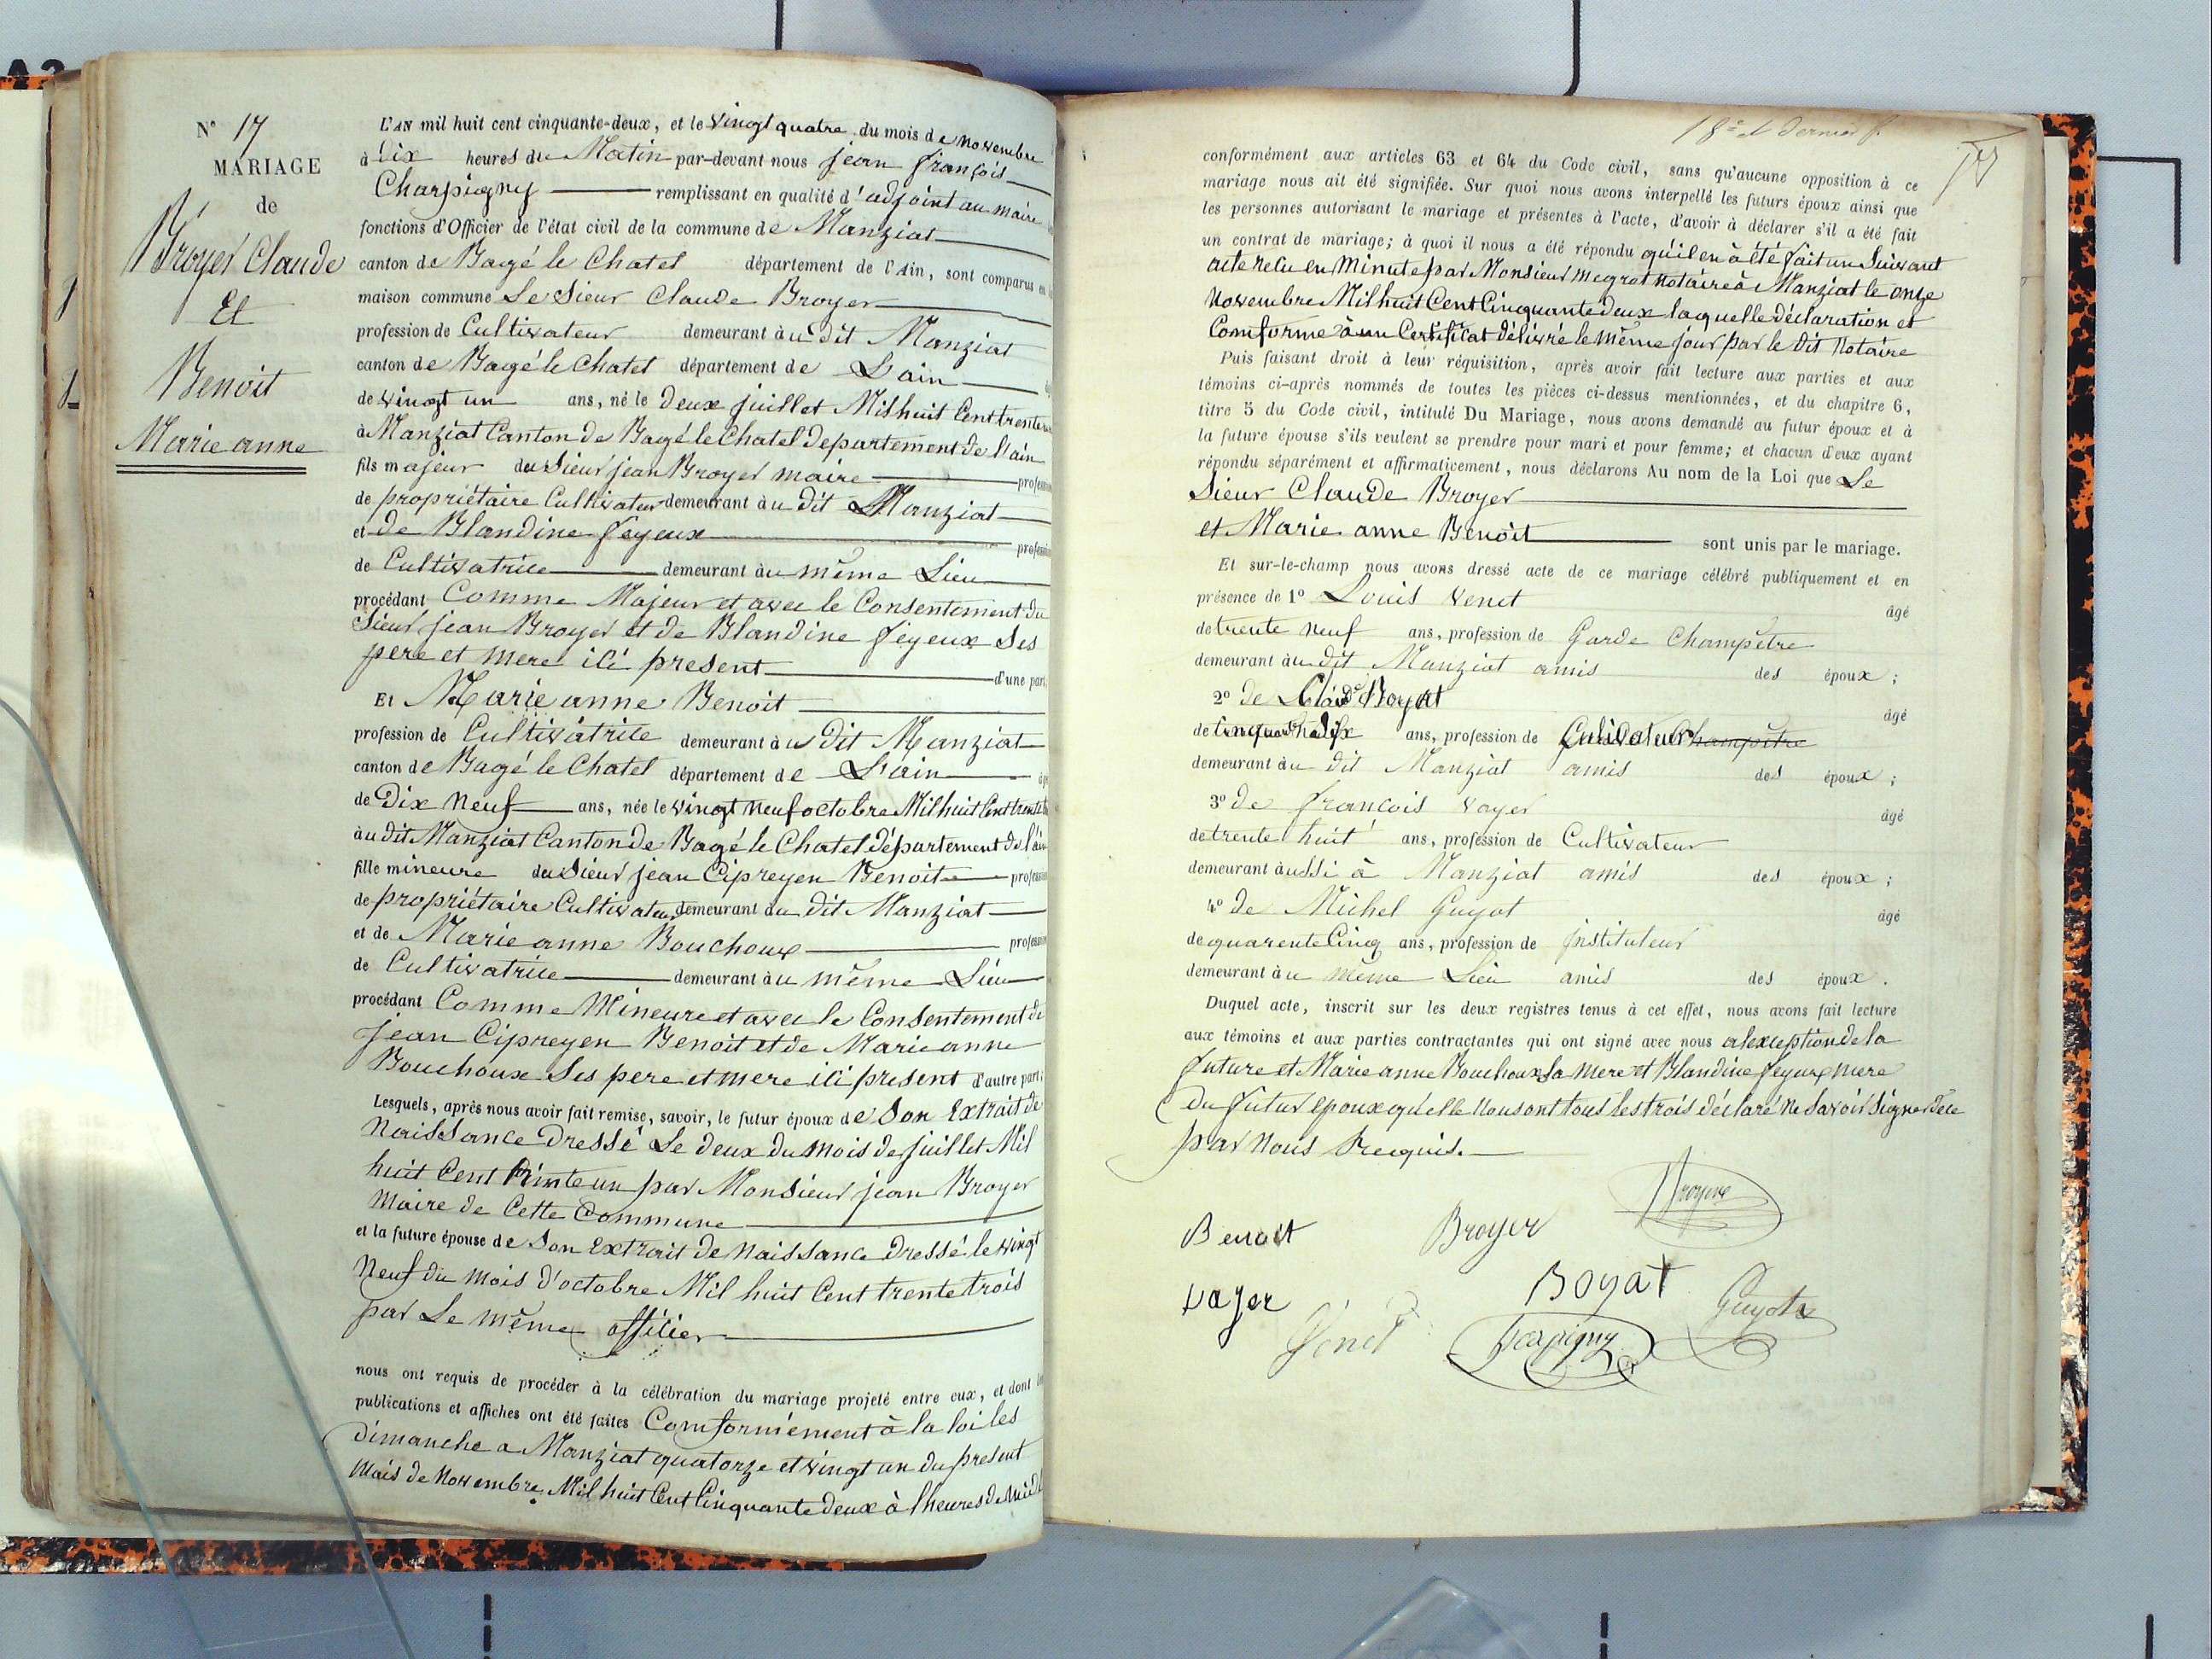 N° 17
MARIAGE
de
Broyer Claude
Et
Benoit
Marie anne
L'AN mil huit cent cinquante-deux, et le vingt quatre du mois de novembre
à Dix heures du Matin par-devant nous jean françois
Charpigny remplissant en qualité d'adjoint au maire
fonctions d'Officier de l'état civil de la commune de Manziat
canton de Bagé le Chatel département de l'Ain, sont comparus en
maison commune Le Sieur Claude Broyer
profession de Cultivateur demeurant àu dit Manziat
canton de Bagé le Chatel département de L'ain
de vingt un ans, né le Deux juillet Mil huit Cent trente
à Manziat Canton de Bagé le Chatel departement de l'ain
fils majeur du Sieur jean Broyer maire profession
de propriétaire Cultivateur demeurant àu dit Manziat
et de Blandine feyeux profession
de Cultivatrice demeurant àu même Lieu
procédant Comme Majeur et avec le Consentement du
Sieur jean Broyer et de Blandine feyeux Ses
pere et mere ici present d'une part
Et Marie anne Benoit
profession de Cultivatrice demeurant àu dit Manziat
canton de Bagé le Chatel département de L'ain
de Dix Neuf ans, née le vingt neuf octobre Mil huit Cent trente
àu dit Manziat Canton de Bagé le Chatel département de l'ain
fille mineure du Sieur jean Cipreyen Benoit profession
de propriétaire Cultivateur demeurant àu dit Manziat
et de Marie anne Bouchoux profession
de Cultivatrice demeurant àu même Lieu
procédant Comme Mineure et avec le Consentement de
jean Cipreyen Benoit et de Marie anne
Bouchoux Ses pere et mere ici present d'autre part;
Lesquels, après nous avoir fait remise, savoir, le futur époux de Son Extrait de
Naissance Dressé Le deux du Mois de juillet Mil
huit Cent trente un par Monsieur jean Broyer
Maire de Cette Commune
et la future épouse de Son Extrait de Naissance Dressé le vingt
Neuf du mois d'octobre Mil huit Cent trente trois
par Le même officier
nous ont requis de procéder à la célébration du mariage projeté entre eux, et dont
publications et affiches ont été faites Comformément à la loi les
dimanche a Manziat quatorze et vingt un du présent
Mois de Novembre Mil huit Cent Cinquante deux à l'heures de midi
18e et dernier f.
conformément aux articles 63 et 64 du Code civil, sans qu'aucune opposition à ce
mariage nous ait été signifiée. Sur quoi nous avons interpellé les futurs époux ainsi que
les personnes autorisant le mariage et présentes à l'acte, d'avoir à déclarer s'il a été fait
un contrat de mariage; à quoi il nous a été répondu qu'il en à été fait un Suivant
acte recu en Minute par Monsieur Megrat Notaire à Manziat le onze
Novembre Mil huit Cent Cinquante deux laquelle déclaration et
Comforme à un Certificat délivré le même jour par le dit Notaire
Puis faisant droit à leur réquisition, après avoir fait lecture aux parties et aux
témoins ci-après nommés de toutes les pièces ci-dessus mentionnées, et du chapitre 6,
titre 5 du Code civil, intitulé Du Mariage, nous avons demandé au futur époux et à
la future épouse s'ils veulent se prendre pour mari et pour femme; et chacun d'eux ayant
répondu séparément et affirmativement, nous déclarons Au nom de la Loi que Le
Sieur Claude Broyer
et Marie anne Benoit sont unis par le mariage.
Et sur-le-champ nous avons dressé acte de ce mariage célébré publiquement et en
présence de 1° Louis Venet âgé
de trente Neuf ans, profession de Garde Champêtre
demeurant àu dit Manziat amis des époux;
2° de Boyat âgé
de Cinquante Dix ans, profession de Cultivateur Champêtre
demeurant àu dit Manziat amis des époux;
3° de françois Vayer âgé
de trente huit ans, profession de Cultivateur
demeurant àussi à Manziat amis des époux;
4° de Michel Guyot âgé
de quarente Cinq ans, profession de instituteur
demeurant àu même Lieu amis des époux.
Duquel acte, inscrit sur les deux registres tenus à cet effet, nous avons fait lecture
aux témoins et aux parties contractantes qui ont signé avec nous a lexception de la
future et Marie anne Bouchoux Sa mere et Blandine feyeux mere
Du futur epoux qu'elle Nous ont tous les trois déclaré Ne Savoir Signer De ce
par Nous Requis.
Benoit Broyer Broyer
vayer Venet Boyat Guyot
Charpigny